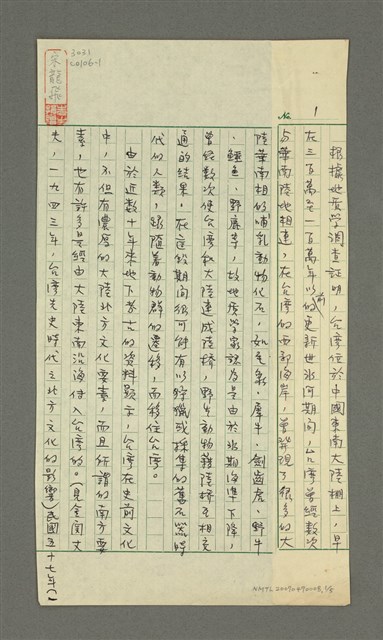 No. 1
根據地質學調查証明，台灣位於中國東南大陸棚上，早
在三百萬至一百萬年以前的更新世冰河期間，台灣曾經數次
与華南陸地相連，在台灣的西部海岸，曾發現了很多的大
陸華南相的哺乳動物化石，如毛象、犀牛、劍齒虎、野牛
、鱷魚、野鹿等，故地質學家認為是由於冰期海準下降，
曾經數次使台灣和大陸連成陸橋，野生動物藉陸橋互相交
通的結果，在這段期間很可能有以狩獵或採集的舊石器時
代的人類，跟隨著動物群的遷移，而移住台灣。
由於近數十年來地下考古的資料顯示，台灣在史前文化
中，不但有濃厚的大陸北方文化要素，而且所謂的南方要
素，也有許多是經由大陸東南沿海付入台灣的。（見金関丈
夫，一九四三年，台灣先史時代之北方文化的影響）民國五十七年（一
3031
20106-1
宋龍飛
NMTL20090490008_1/8